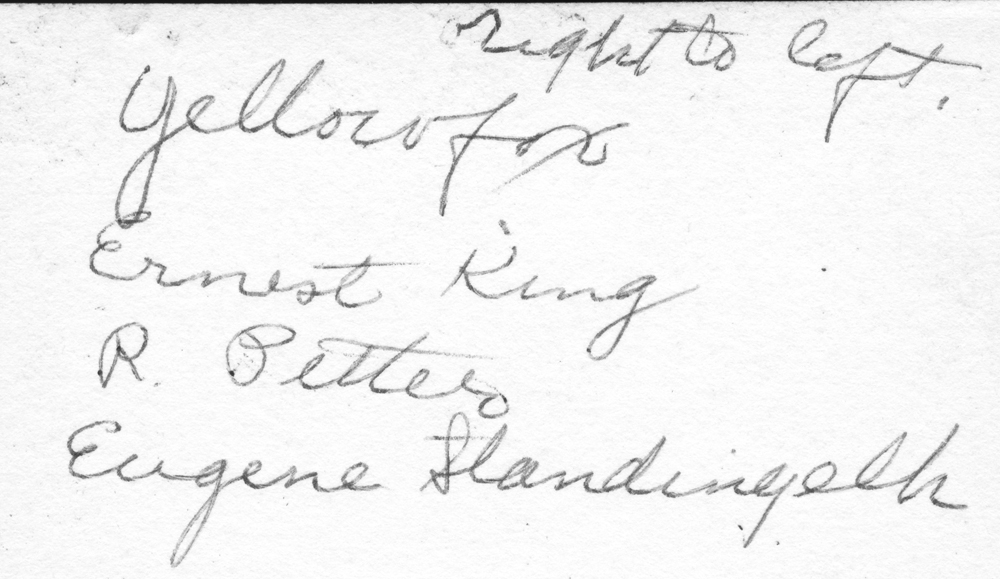 right to left.
Yellowfox
Ernest King
R. Petter
Eugene Standingelk